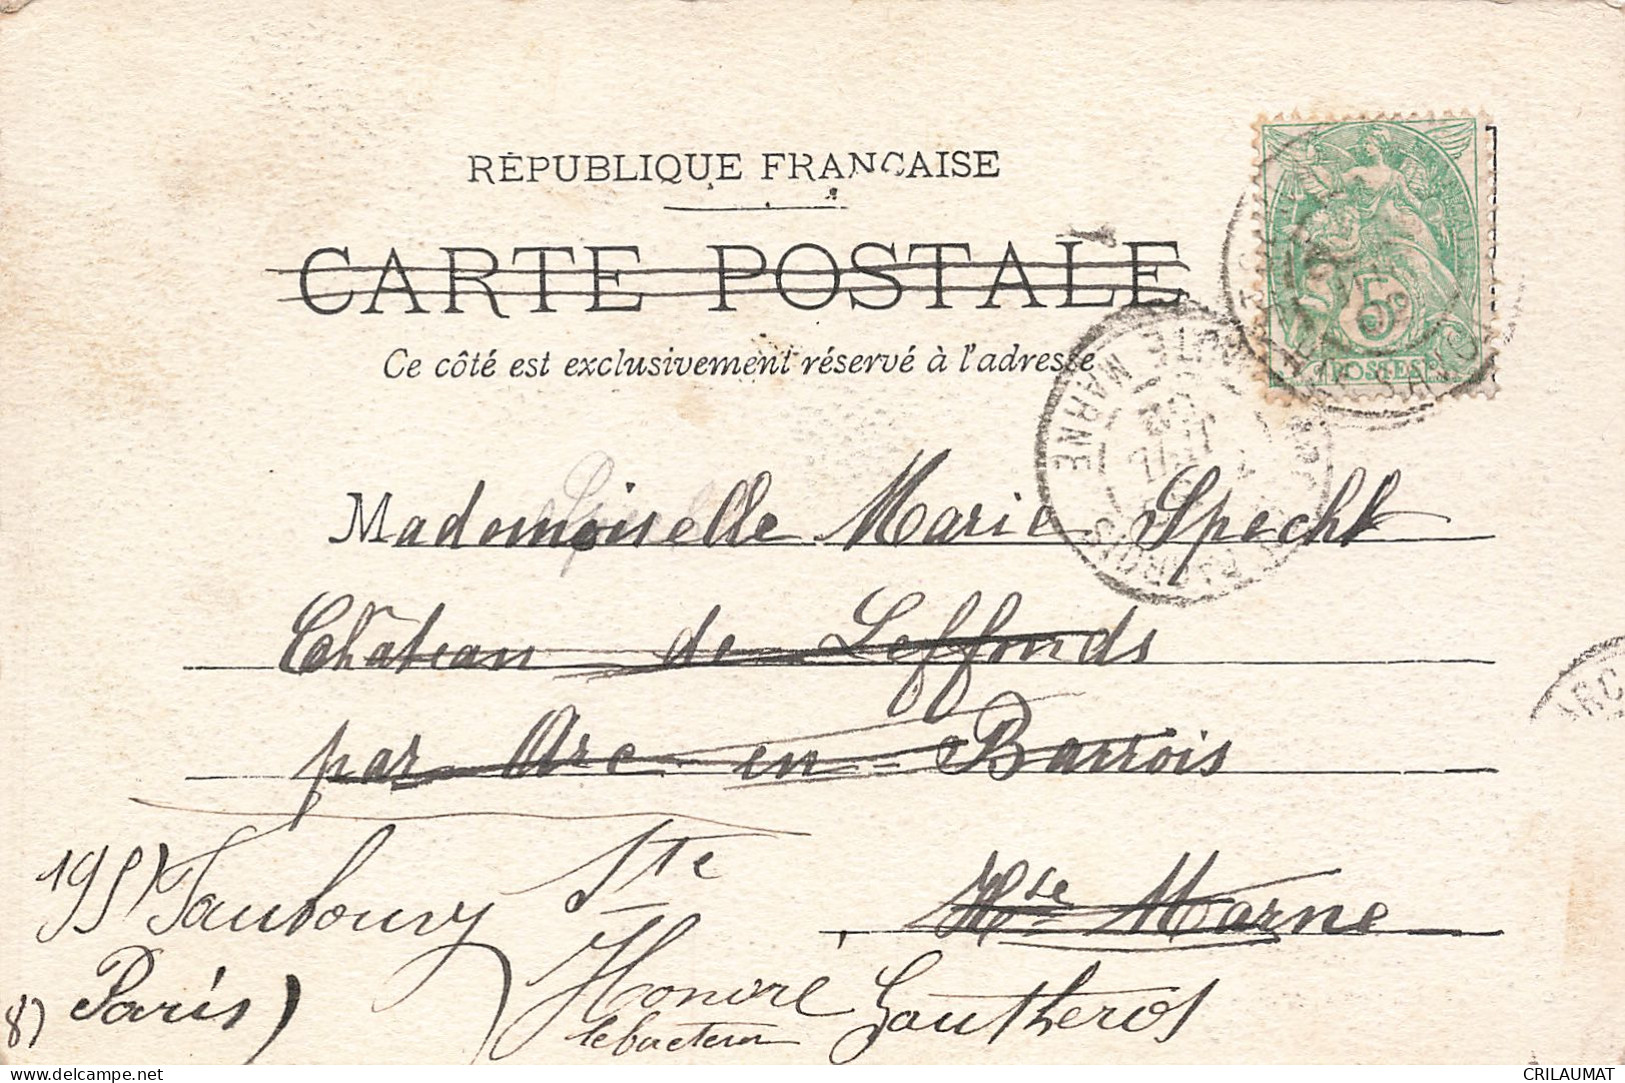 RÉPUBLIQUE FRANÇAISE
CARTE POSTALE
Ce côté est exclusivement réservé à l'adresse
5
POSTES
MARNE
BARROIS
ARC
Mademoiselle Marie Specht
Château de Leffonds
par Arc-en-Barrois
Hte Marne
195) Faubourg St
Honoré Gautherot
Paris)
8)
le facteur
CRILAUMAT